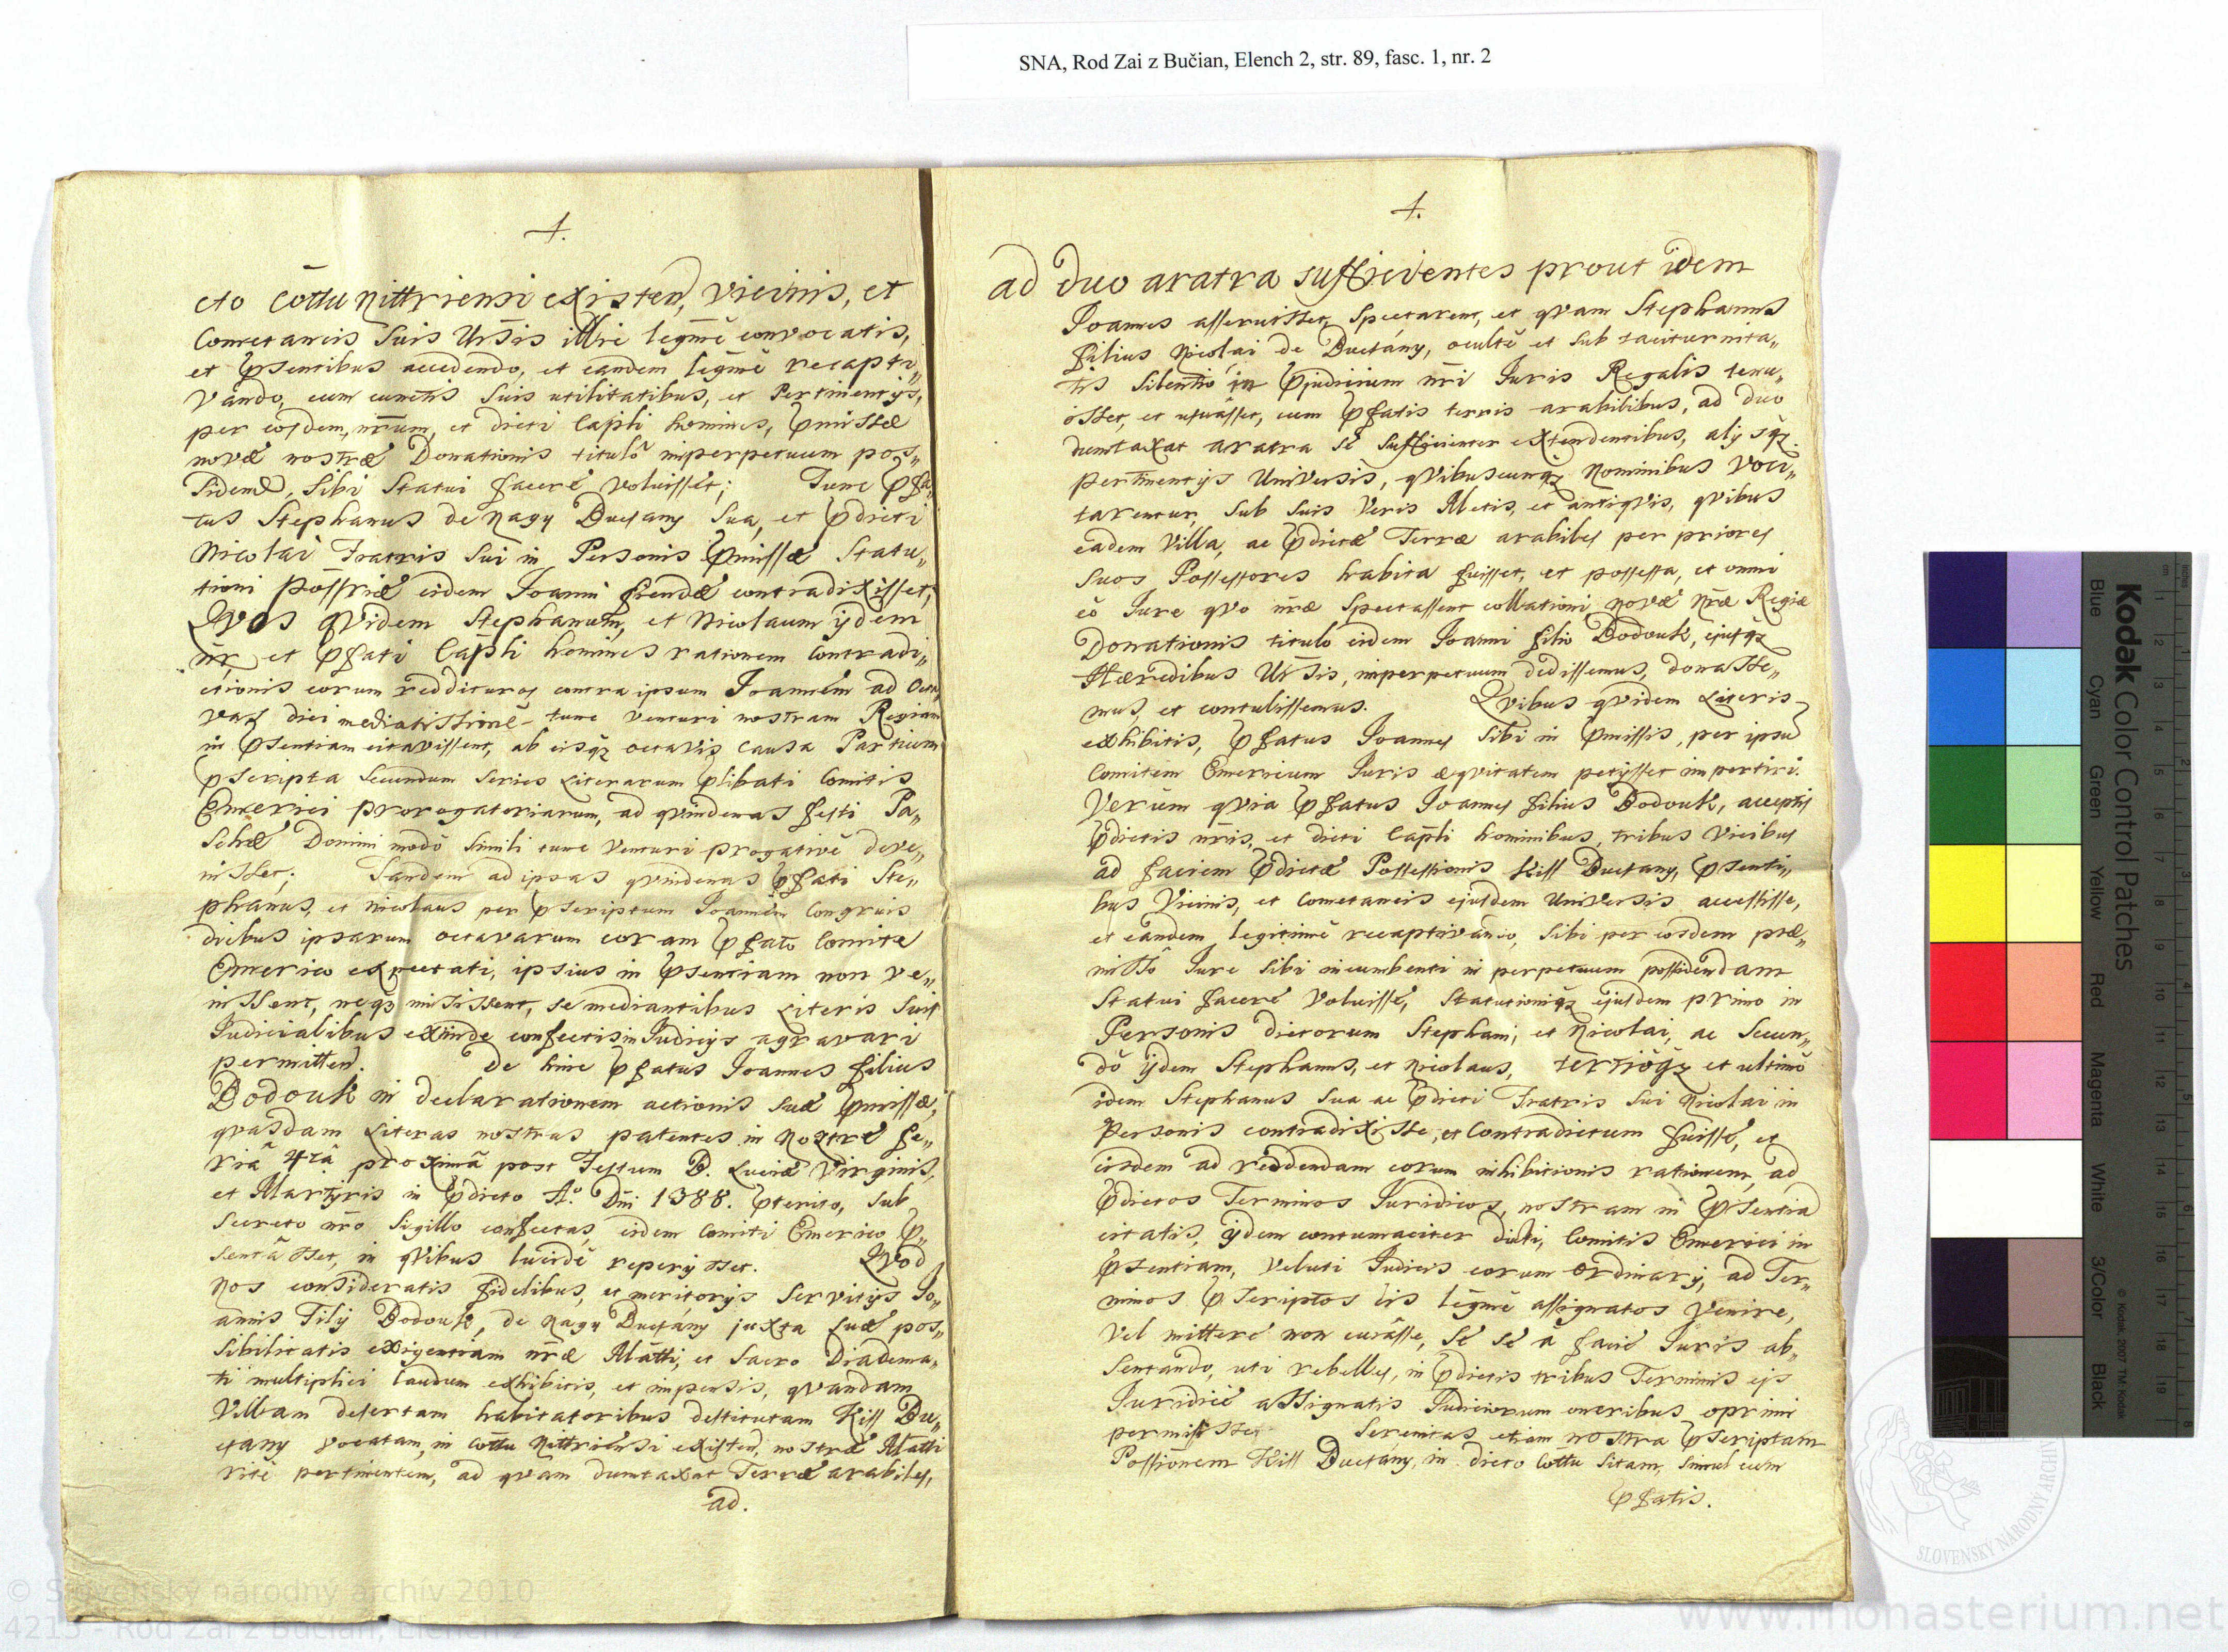 SNA, Rod Zai z Bučian, Elench 2, str. 89, fasc. 1, nr. 2
1.
cto Cottu Nittriensi existen, vicinis, et
Cometaneis Suis Ursis illric legmè convocatis,
et Psentibus accedendo, et eandem legmè recapti„
vando, cum cunctis Suis utilitatibus, et Pertinentijs,
per eosdem, nrum, et dicti Capli homines, Pmissae
novae nostrae Donationis titulô inperpetuum pos„
sidend, Sibi Statui facere voluisset; Tunc Pfa„
tus Stephanus de Nagy Ductany Sua, et Pdicti
Nicolai Fratris Sui in Personis Pmissae Statu„
tioni Possriae eidem Joanni fiendae contradixisset,
Qvos qvidem Stephanum, et Nicolaum ijdem
nr, et Pfati Capli homines rationem Contradi„
ctionis eorum reddituros contra ipsum Joannem ad Octa„
vas diei mediatis tunc venturi nostram Regiam
in Psentiam citavissent, ab eisqz octavis Causa Partium
Pscripta Secundum Series Literarum Plibati Comitis
Emerici prorogatoriarum, ad qvindenas festi Pa„
schae Domini modô Simili tunc Venturi progativè deve„
nisset; Tandem ad ipsas qvindenas Pfati Ste„
phanus, et Nicolaus per Pscriptum Joannem Congruis
diebus ipsarum octavarum coram Pfato Comite
Emerico expectati, ipsius in Psentiam non ve„
nissent, neqz misissent, se mediantibus Literis Suis
Judicialibus exinde confectis in Judicijs agravari
permitten. De hinc Pfatus Joannes filius
Bodouk in declarationem actionis suae Pmissae,
qvasdam Literas nostras patentes in Nostre fe„
riâ 4tâ proximâ post Festum B. Luciae Virginis,
et Martyris in Pdicto Ao Dni 1388. Pterito, Sub
Secreto nro Sigillo confectas, eidem Comiti Emerico P„
sentâsset, in qvibus lucidè reperijsset. Qvod
Nos consideratis fidelibus, et meritorijs Servitijs Jo„
annis Filij Bodouk, de Nagy Ductány juxta suae pos„
sibilitatis exigentiam nrae Matti, et Sacro Diadema„
ti multiplici laudum exhibitis, et impensis, qvandam
Villam desertam habitatoribus destitutam Kiss Du„
ctany vocatam, in Cottu Nittriensi existen, nostrae Matti
ritè pertinentem, ad qvam dumtaxat Terrae arabiles,
ad.
1.
ad duo aratra sufficientes prout idem
Joannes asseruisset, Spectarent, et qvam Stephanus
filius Nicolai de Ductány, ocultè et Sub taciturnita„
tis Silentio in Pjudicium nri Juris Regalis tenu„
isset, et usuâsset, cum Pfatis terris arabilibus, ad duo
dumtaxat aratra sè Sufficienter extendentibus, alijsqz
pertinentijs Universis, qvibuscunqz Nominibus Voci„
tarentur, Sub Suis Veris Metis, et antiqvis, qvibus
eadem Villa, ac Pdictae Terrae arabiles per priores
Suos Possessores habita fuisset, et possessa, et omni
eô Jure qvo nrae Spectassent collationi novae Nrae Regiae
Donationis titulo eidem Joanni filio Bodouk, ejusqz
Haeredibus Ursis, inperpetuum dedissemus, donasse„
mus, et contulissemus. Qvibus qvidem Literis
exhibitis, Pfatus Joannes Sibi in Pmissis, per ipsu
Comitem Emericum Juris aeqvitatem petijsset impertiri.
Verùm qvia Pfatus Joannes filius Bodouk, acceptis
Pdictis nris, et dicti Capli hominibus, tribus Vicibus
ad faciem Pdictae Possessionis Kiss Ductany, Psenti„
bus Vicinis, et Cometaneis ejusdem Universis accessisse,
et eandem legitimè recaptivando, Sibi per eosdem prae„
missô Jure Sibi incumbenti in perpetuum possidendam
Statui facere Voluisse, Statutioniqz ejusdem primo in
Personis dictorum Stephani, et Nicolai, ac Secun„
dô ijdem Stephanus, et Nicolaus, tertiôqz et ultimô
idem Stephanus Sua ac Pdicti Fratris Sui Nicolai in
Personis contradixisse, et Contradictum fuisse, et
eisdem ad reddendam eorum inhibitionis rationem, ad
Pdictos Terminos Juridicos, nostram in Psentia
citatis, ijdem contumaciter dicti, Comitis Emerici in
Psentiam, veluti Judicis eorum Ordinarij, ad Ter„
minos Pscriptos eis legmè assignatos Venire,
Vel mittere non curâsse, Sè Sè à facie Juris ab„
sentando, uti rebelles, in Pdictis tribus Terminis ejs
Juridicè assignatis Judiciorum oneribus oprimi
permisisse. Serenitas etiam nostra Pscriptam
Possionem Kiss Ductány, in dicto Cottu Sitam, Simul cum
Pfatis.
Kodak Color Control Patches
Blue
Cyan
Green
Yellow
Red
Magenta
White
3/Color
Black
© Kodak, 2007 TM: Kodak
SLOVENSKÝ NÁRODNÝ ARCHÍV
© Slovenský národný archív 2010
4215 - Rod Zai z Bučian, Elench 2
www.monasterium.net